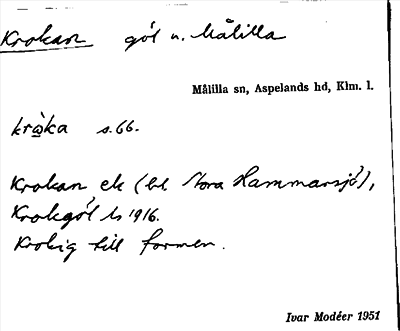 Krokan göl n. Målilla
Målilla sn, Aspelands hd, Klm. l.
kråka s. 66.
Krokan ek (bl Stora Hammarsjö),
Krokgöl Is 1916.
Krokig till formen.
Ivar Modéer 1951